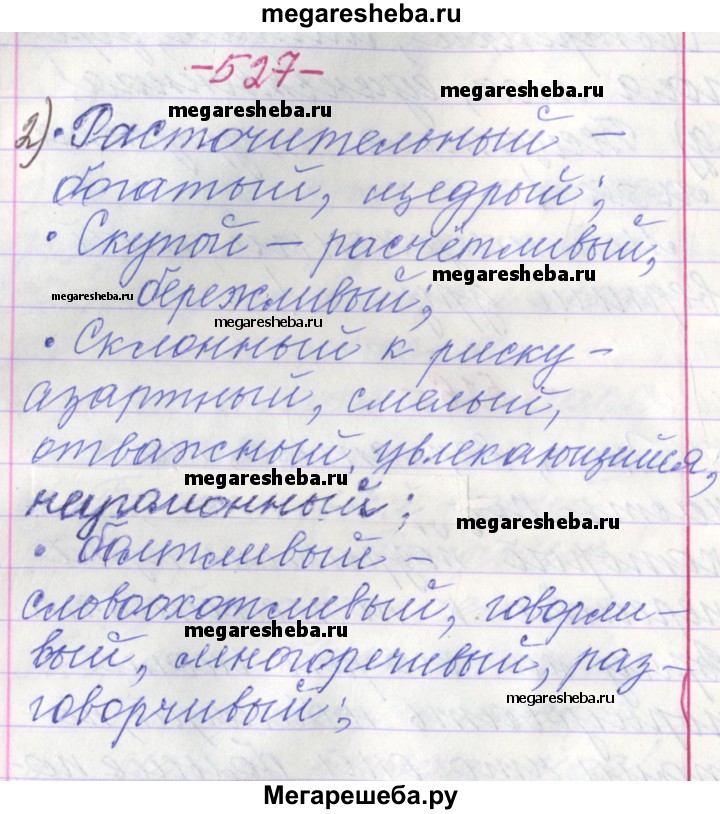 megaresheba.ru
-527-
megaresheba.ru
megaresheba.ru
2) • Расточительный –
богатый, щедрый;
• Скупой – расчётливый,
megaresheba.ru
megaresheba.ru
бережливый;
megaresheba.ru
• Склонный к риску –
азартный, смелый,
отважный, увлекающийся,
megaresheba.ru
неугомонный;
megaresheba.ru
• болтливый –
словоохотливый, говорли-
megaresheba.ru
вый, многоречивый, раз-
megaresheba.ru
говорчивый;
Мегарешеба.ру